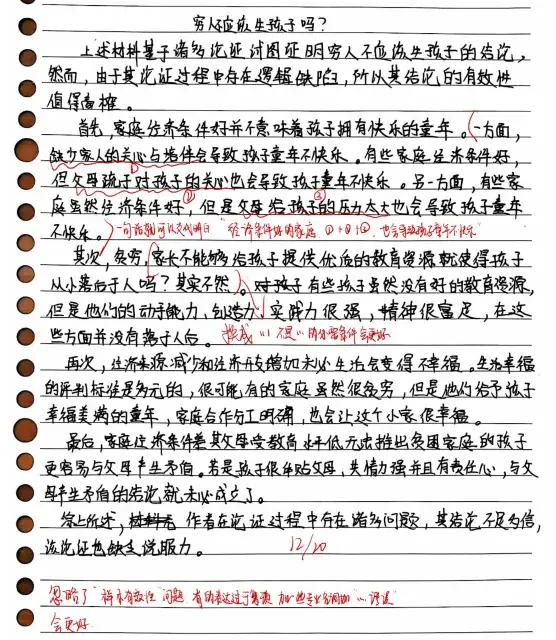 穷人不应该生孩子吗?
上述材料基于诸多论证试图证明穷人不应该生孩子的结论,
然而,由于其论证过程中存在逻辑缺陷,所以其结论的有效性
值得商榷。
首先,家庭经济条件好并不意味着孩子拥有快乐的童年。一方面,
缺少家人的关心与陪伴会导致孩子童年不快乐。有些家庭经济条件好,
但父母疏于对孩子的关心也会导致孩子童年不快乐。另一方面,有些家
庭虽然经济条件好,但是父母给孩子的压力太大也会导致孩子童年
不快乐。
一句话就可以交代明白 "经济条件好的家庭 ①+②+③,也会导致孩子童年不快乐"
其次,贫穷家长不能够给孩子提供优质的教育资源就使得孩子
从小落后于人吗?其实不然。对孩子有些孩子虽然没有好的教育资源,
但是他们的动手能力、创造力、实践力很强,精神很富足,在这
些方面并没有落于人后。
换成
会更好
再次,经济来源减少和经济开支增加未必生活会变得不幸福。生活幸福
的评判标准是多元的,很可能有的家庭虽然很贫穷,但是他们给予孩子
幸福美满的童年,家庭合作分工明确,也会让这个小家很幸福。
最后,家庭经济条件差其父母受教育水平低无法推出贫困家庭的孩子
更容易与父母产生矛盾。若是孩子很体贴父母,共情力强并且有责任心,与父
母产生矛盾的结论就未必成立了。
综上所述,材料无 作者在论证过程中存在诸多问题,其结论不足为信,
该论证也缺乏说服力。
12/20
忽略了"样本有效性"问题 有的表达过于繁琐 加一些专业名词如"…谬误"
会更好